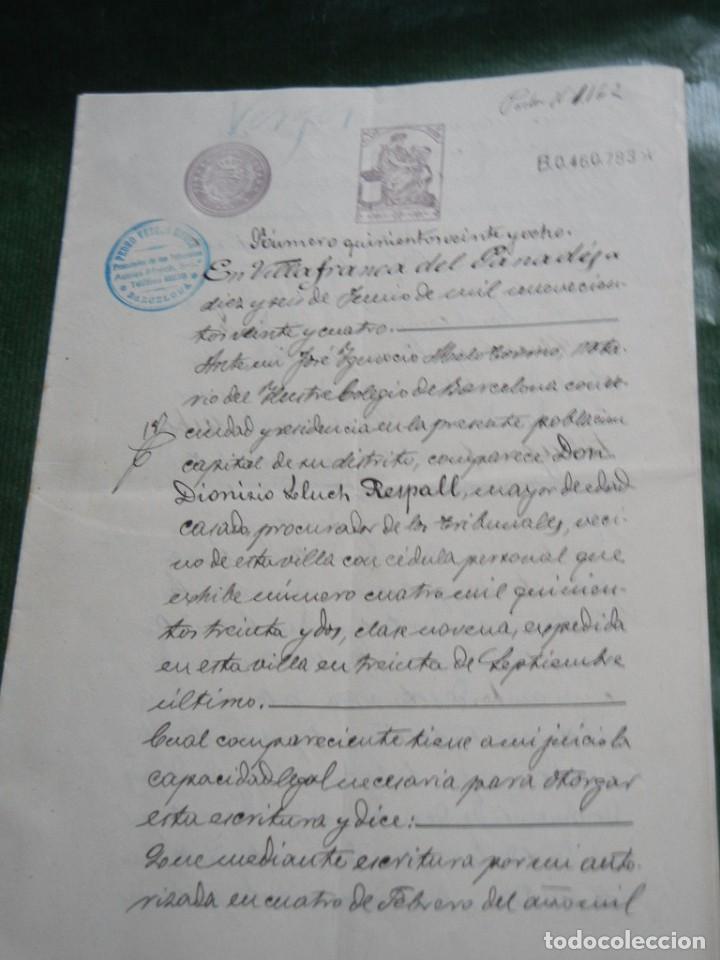 Verger
1162
B.0.460.783
PEDRO
Procurador de los Tribunales
BARCELONA
Número quinientos veinte y ocho.
En Villafranca del Panadés, a
diez y seis de Junio de mil novecien-
tos veinte y cuatro.
Ante mi José Ignacio, nota-
rio del Ilustre Colegio de Barcelona con
ciudad y residencia en la presente poblacion
capital de su distrito, comparece Don
Dionisio Lluch Respall, mayor de edad
casado, procurador de los Tribunales, veci-
no de esta villa con cédula personal que
exhibe número cuatro mil quinien-
tos treinta y dos, clase novena, expedida
en esta villa en treinta de Septiembre
último.
Cual compareciente tiene a mi juicio la
capacidad legal necesaria para otorgar
esta escritura y dice:
Que mediante escritura por mi auto-
rizada en cuatro de Febrero del año mil
todocoleccion
todocoleccion.net